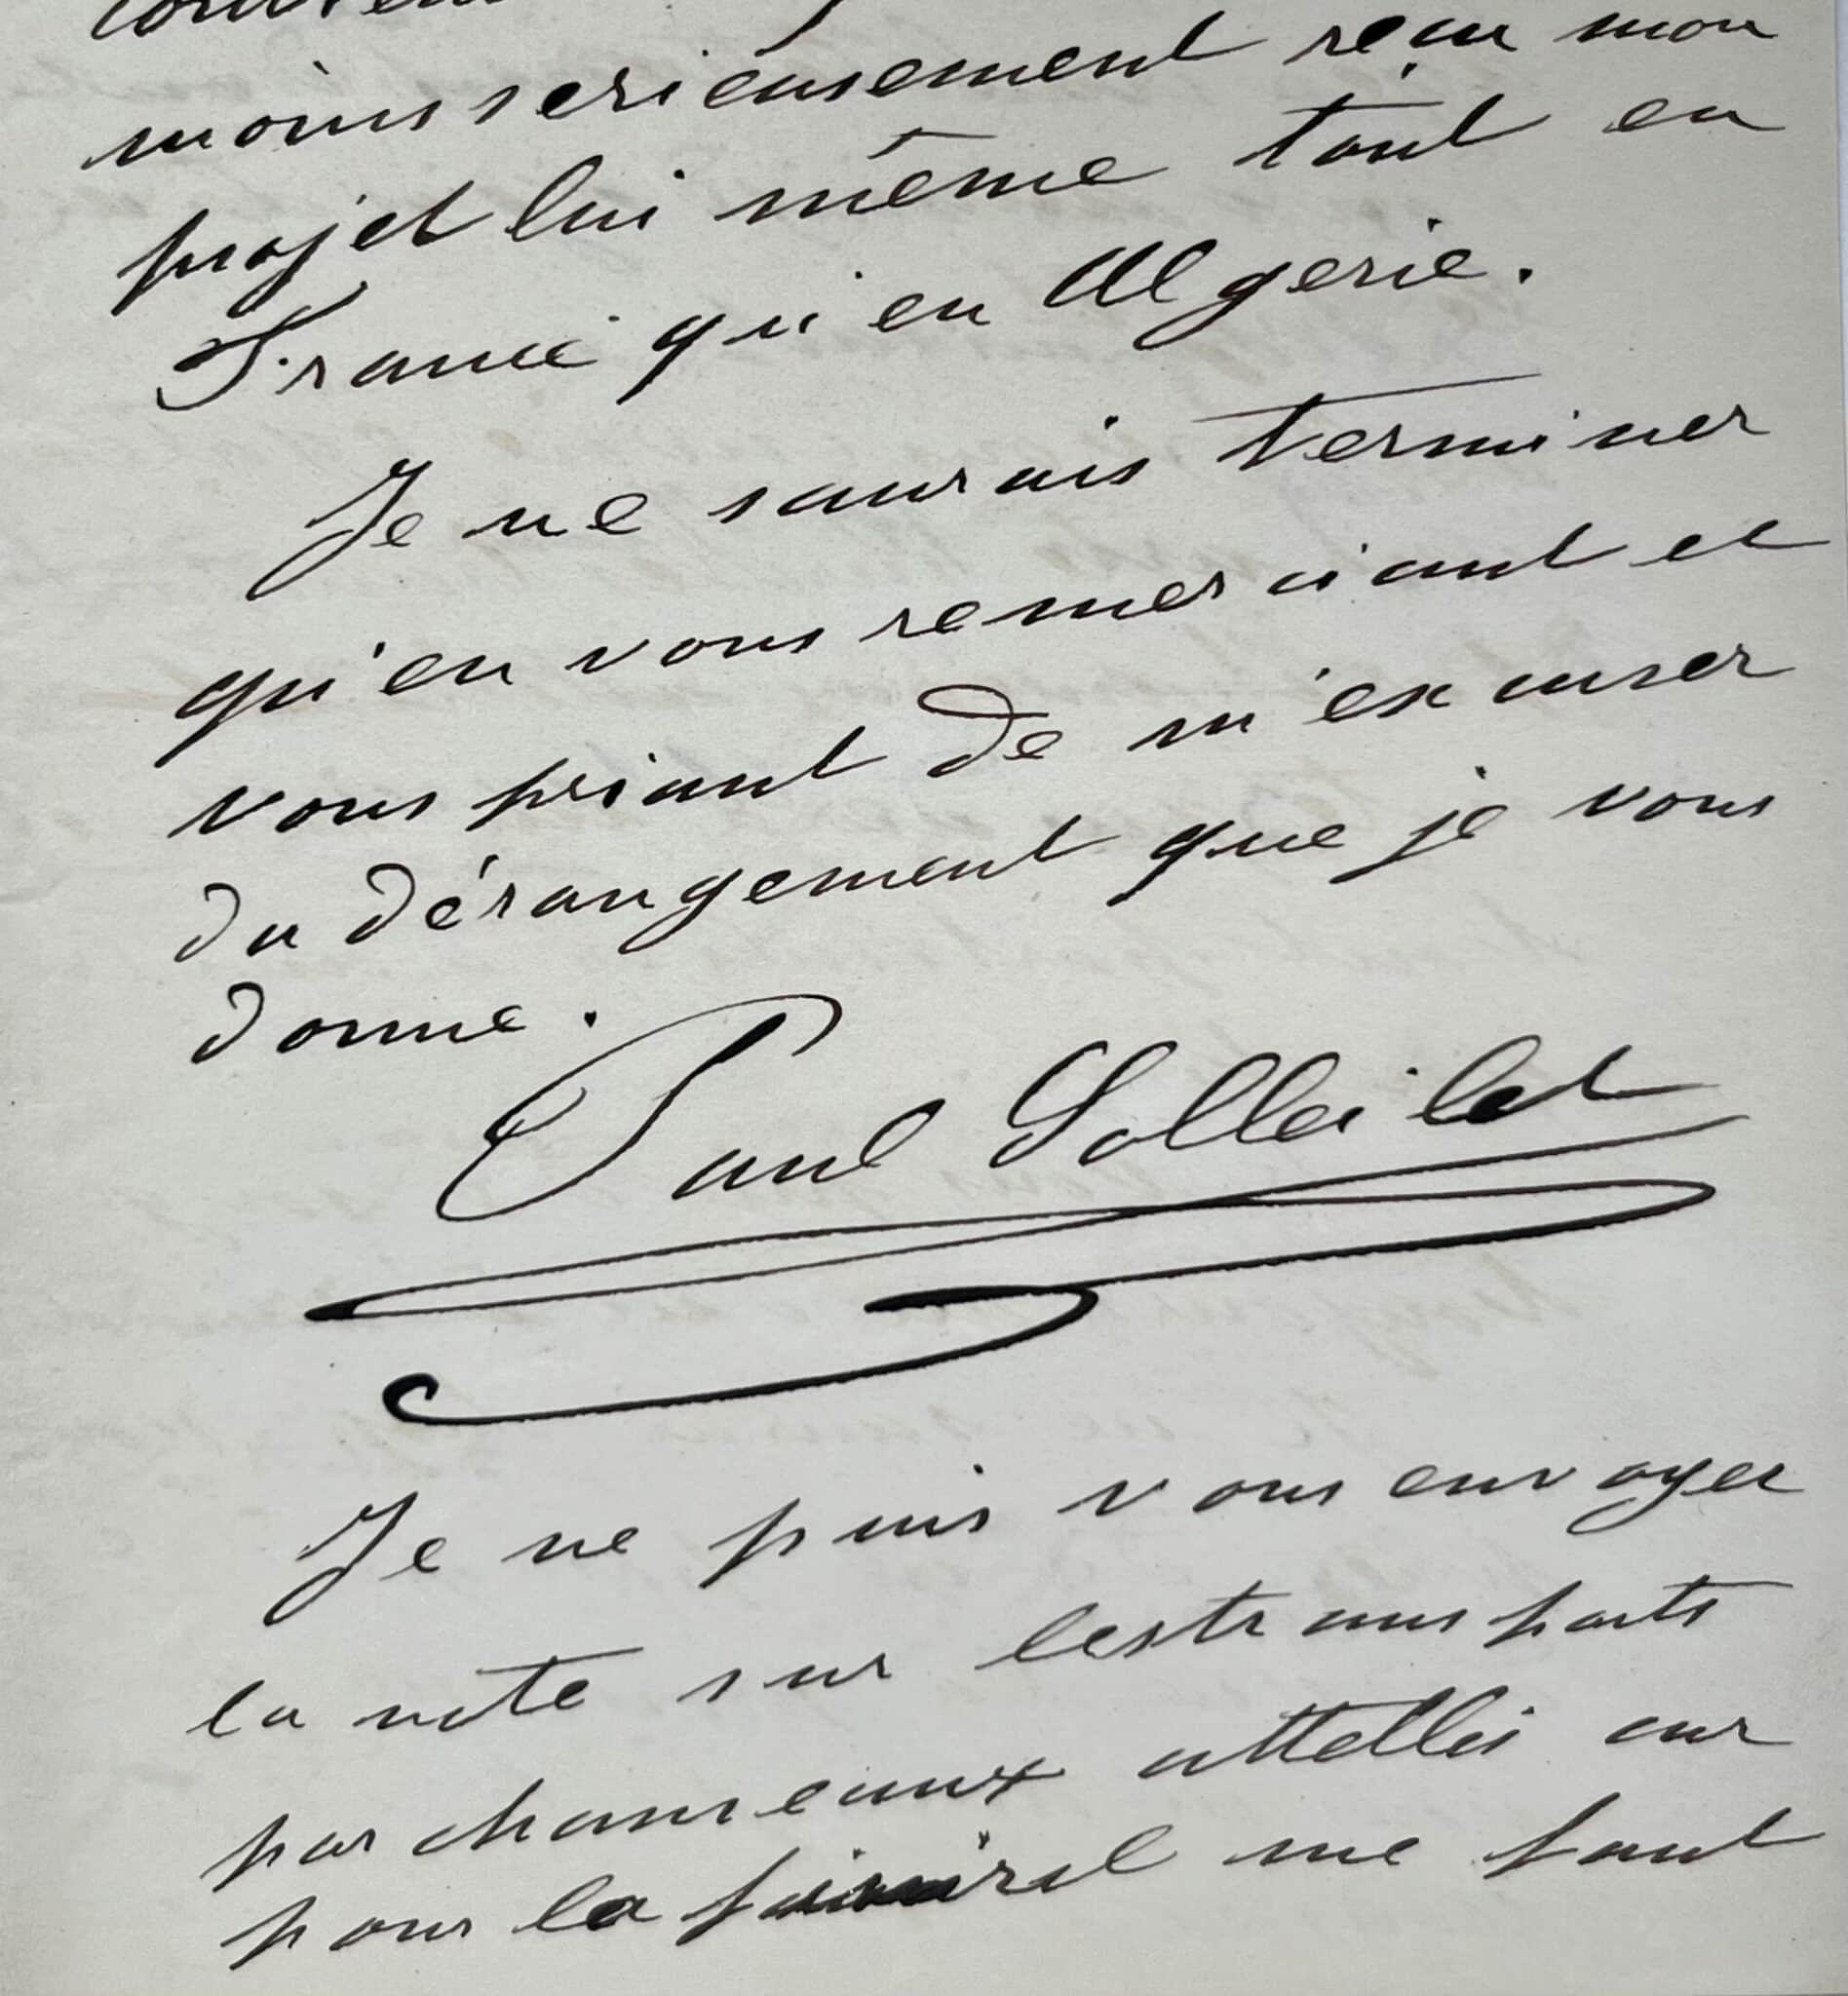 moins serieusement reçu mon
projet lui même tant en
France qu'en Algerie.
Je ne saurais terminer
qu'en vous remerciant et
vous priant de m'excuser
du dérangement que je vous
donne.
Paul Solleilet
Je ne puis vous envoyer
la note sur les transports
par chameaux attellés car
pour la faire il me faut